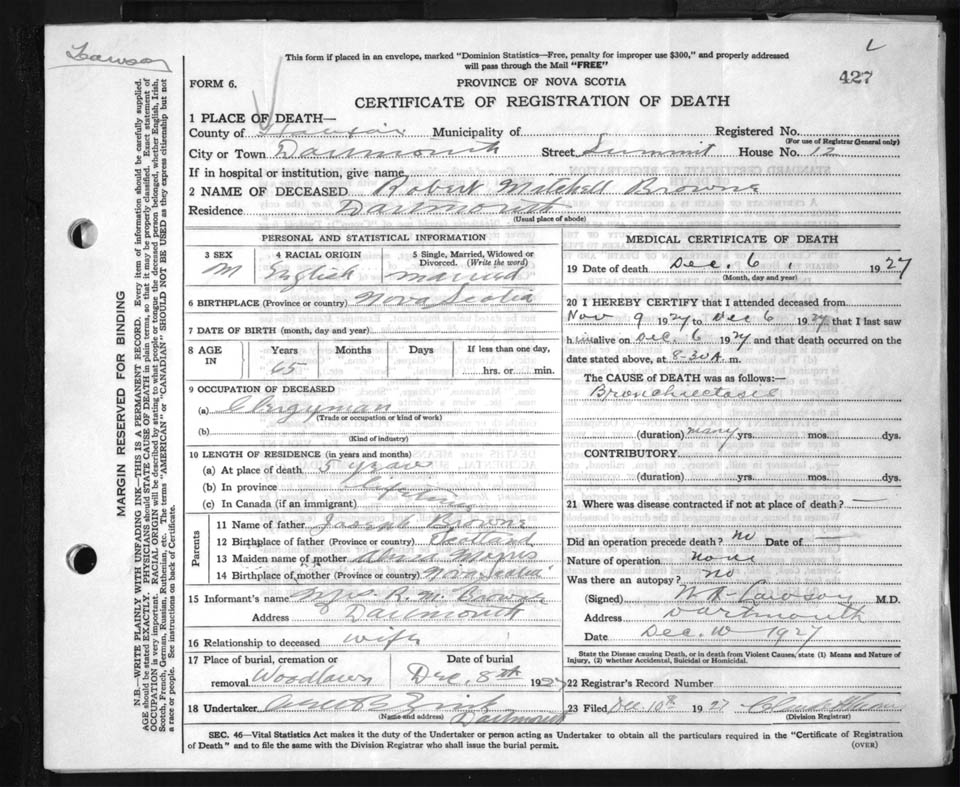 This form if placed in an envelope, marked "Dominion Statistics—Free, penalty for improper use $300," and properly addressed
will pass through the Mail "FREE"
FORM 6.
PROVINCE OF NOVA SCOTIA
427
CERTIFICATE OF REGISTRATION OF DEATH
1 PLACE OF DEATH—
County of Municipality of Registered No.
(For use of Registrar General only)
City or Town Dartmouth Street Summit House No. 12
If in hospital or institution, give name
2 NAME OF DECEASED Robert Mitchell Browne
Residence Dartmouth
(Usual place of abode)
PERSONAL AND STATISTICAL INFORMATION
3 SEX 4 RACIAL ORIGIN 5 Single, Married, Widowed or Divorced. (Write the word)
M English married
6 BIRTHPLACE (Province or country) Nova Scotia
7 DATE OF BIRTH (month, day and year)
8 AGE IN Years Months Days If less than one day,
65 hrs. or min.
9 OCCUPATION OF DECEASED
(a) Clergyman
(Trade or occupation or kind of work)
(b)
(Kind of industry)
10 LENGTH OF RESIDENCE (in years and months)
(a) At place of death 5 years
(b) In province lifetime
(c) In Canada (if an immigrant)
Parents
11 Name of father Joseph Browne
12 Birthplace of father (Province or country) Scotland
13 Maiden name of mother
14 Birthplace of mother (Province or country) Nova Scotia
15 Informant's name Mrs R. M. Browne
Address Dartmouth
16 Relationship to deceased wife
17 Place of burial, cremation or removal Woodlawn Date of burial Dec. 8th 1927
18 Undertaker
(Name and address) Dartmouth
MEDICAL CERTIFICATE OF DEATH
19 Date of death Dec. 6, 1927
(Month, day and year)
20 I HEREBY CERTIFY that I attended deceased from
Nov 9 1927 to Dec 6 1927 that I last saw
him alive on Dec. 6 1927 and that death occurred on the
date stated above, at 8-30 A. m.
The CAUSE OF DEATH was as follows:—
Bronchiectasis
(duration) many yrs. mos. dys.
CONTRIBUTORY
(duration) yrs. mos. dys.
21 Where was disease contracted if not at place of death? —
Did an operation precede death? no Date of —
Nature of operation none
Was there an autopsy? no
(Signed) M.D.
Address Dartmouth
Date Dec. 10 1927
State the Disease causing Death, or in death from Violent Causes, state (1) Means and Nature of
Injury, (2) whether Accidental, Suicidal or Homicidal.
22 Registrar's Record Number
23 Filed Dec 10th 1927
(Division Registrar)
SEC. 46—Vital Statistics Act makes it the duty of the Undertaker or person acting as Undertaker to obtain all the particulars required in the "Certificate of Registration
of Death" and to file the same with the Division Registrar who shall issue the burial permit.
(OVER)
MARGIN RESERVED FOR BINDING
N.B.—WRITE PLAINLY WITH UNFADING INK—THIS IS A PERMANENT RECORD. Every item of information should be carefully supplied.
AGE should be stated EXACTLY. PHYSICIANS should STATE CAUSE OF DEATH in plain terms, so that it may be properly classified. Exact statement of
OCCUPATION is very important. RACIAL ORIGIN will be described by stating to what people or tongue the deceased person belonged, whether English, Irish,
Scotch, French, German, Russian, Ruthenian, etc. The terms "AMERICAN" or "CANADIAN" SHOULD NOT BE USED as they express citizenship but not
a race or people. See instructions on back of Certificate.